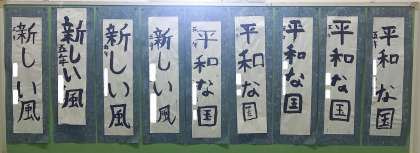 平和な国
平和な国
平和な国
平和な国
平和な国
新しい風
新しい風
新しい風
新しい風